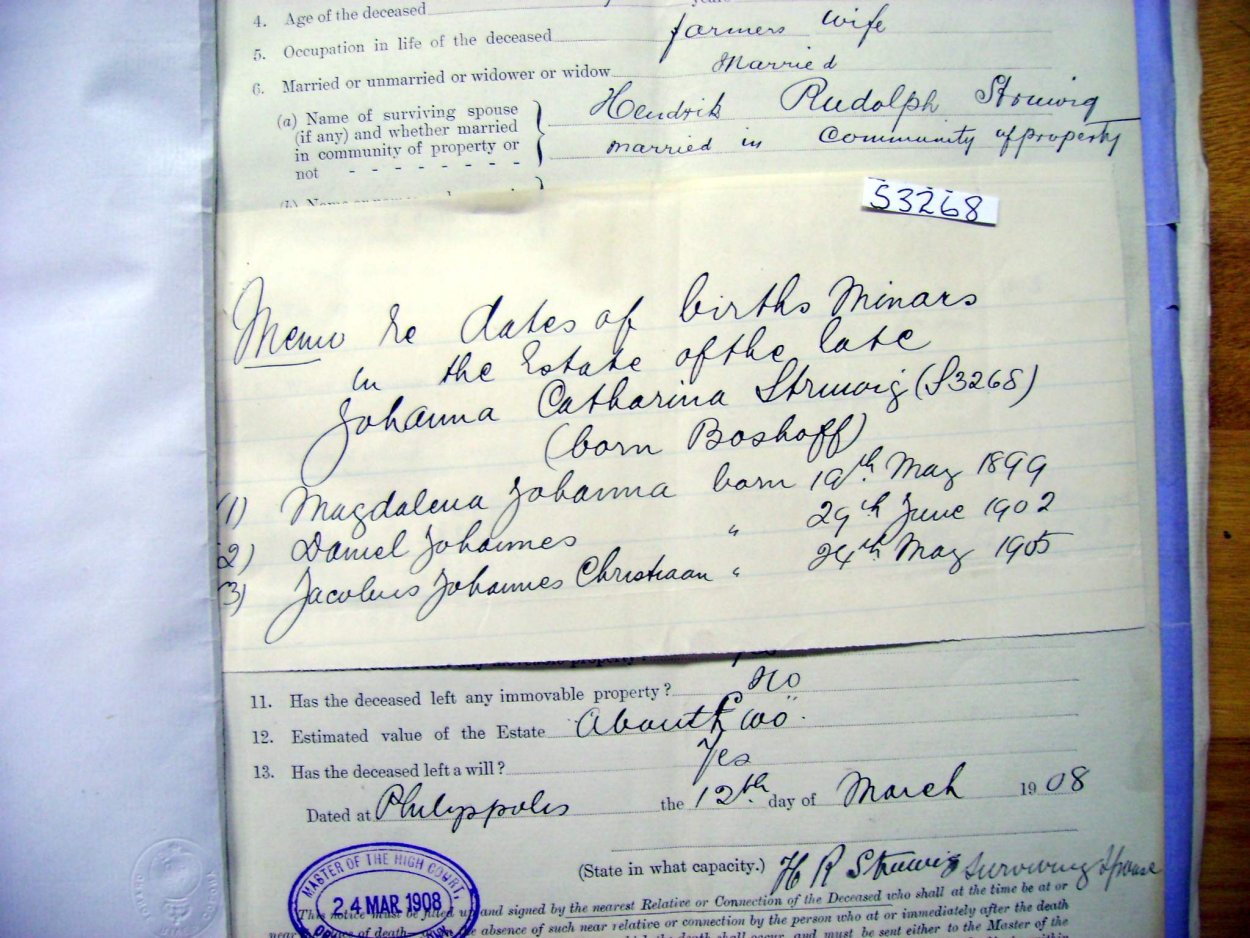 4. Age of the deceased
5. Occupation in life of the deceased farmers wife
6. Married or unmarried or widower or widow Married
(a) Name of surviving spouse
(if any) and whether married
in community of property or
not - - - - - - -
Hendrik Rudolph Struwig
married in Community of property
S3268
Memo re dates of births Minors
in the Estate of the late
Johanna Catharina Struwig (S3268)
(born Boshoff)
(1) Magdalena Johanna born 19th May 1899
(2) Daniel Johannes " 29th June 1902
(3) Jacobus Johannes Christiaan " 24th May 1905
11. Has the deceased left any immovable property? No
12. Estimated value of the Estate About £100
13. Has the deceased left a will? Yes
Dated at Philippolis the 12th day of March 1908
(State in what capacity.) H R Struwig Surviving Spouse
MASTER OF THE HIGH COURT,
24 MAR 1908
This notice must be filled up and signed by the nearest Relative or Connection of the Deceased who shall at the time be at or
near place of death in the absence of such near relative or connection by the person who at or immediately after the death
and must be sent either to the Master of the